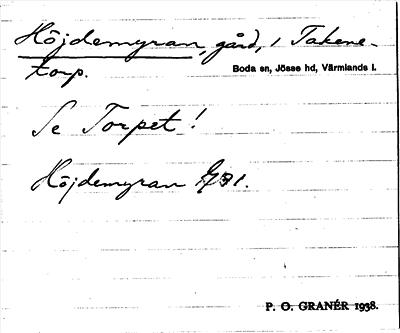 Höjdemyran, gård, i Takene-
torp.
Boda sn, Jösse hd, Värmlands l.
Se Torpet!
Höjdemyran GB1.
P. O. GRANÉR 1938.